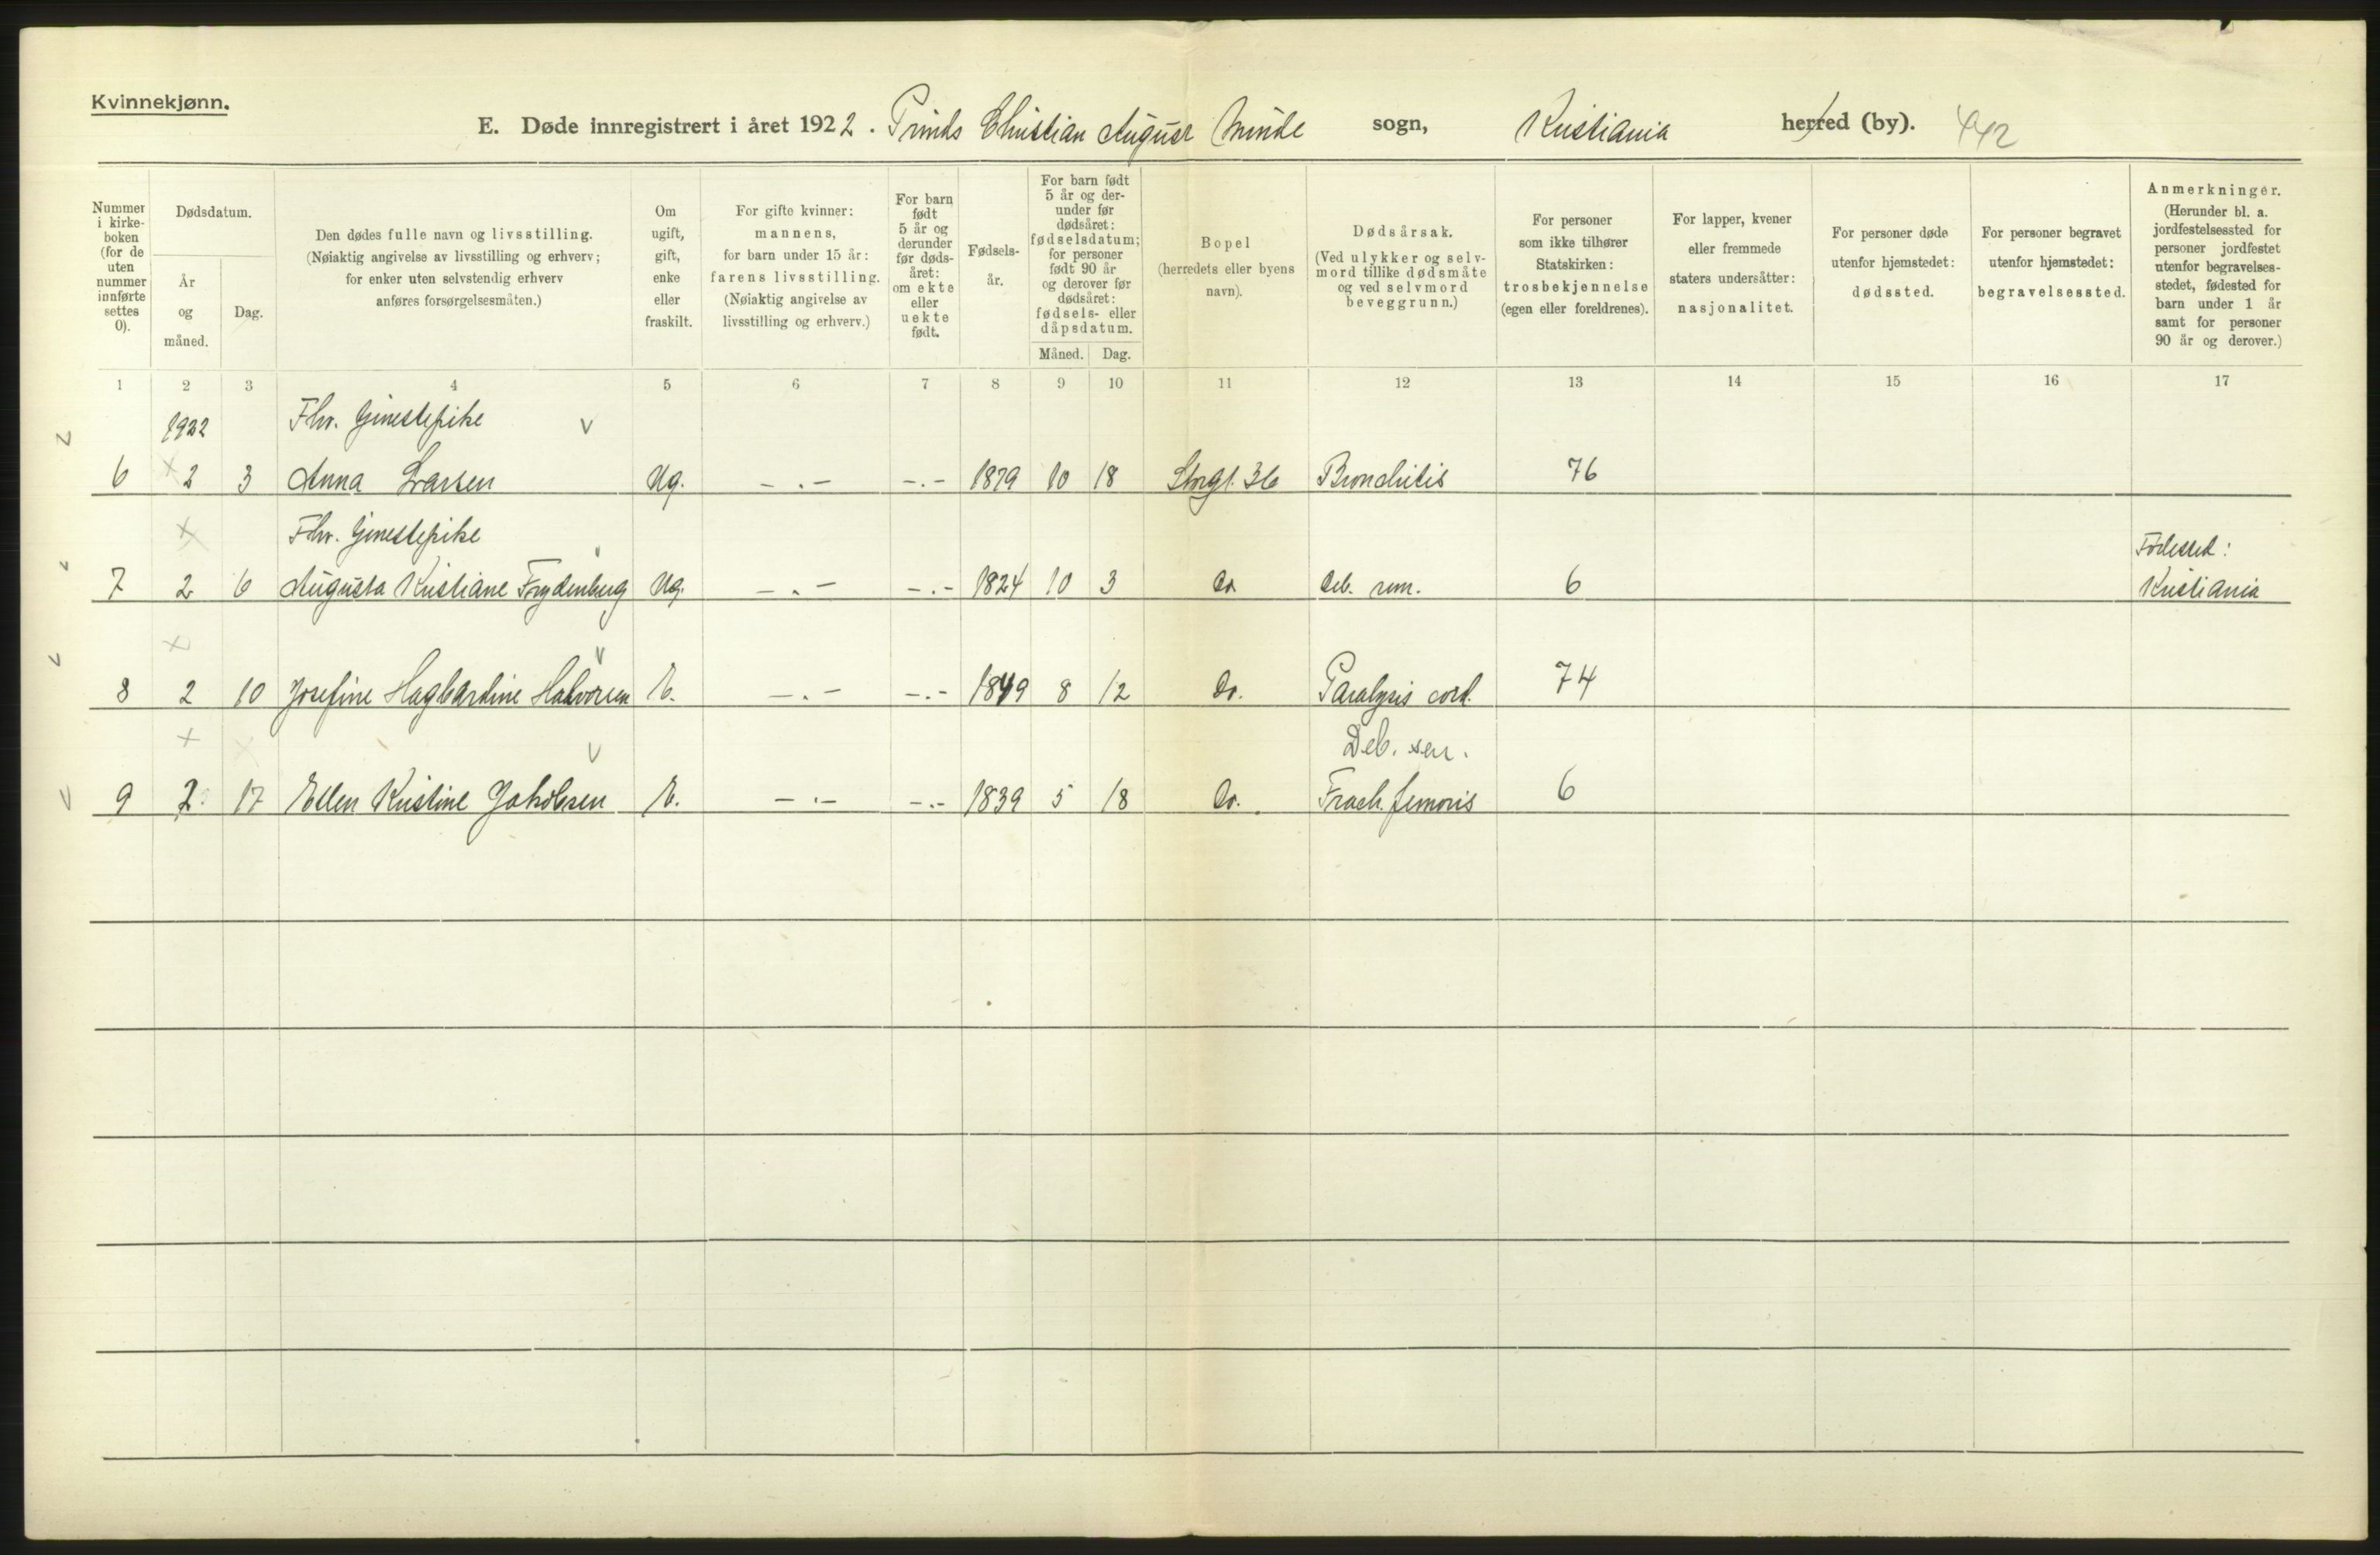 Kvinnekjønn.
E. Døde innregistrert i året 1922. Prinds Christian August Minde sogn, Kristiania herred (by). 442
Nummer i kirke-boken (for de uten nummer innførte settes 0).
Dødsdatum.
År og måned.
Dag.
Den dødes fulle navn og livsstilling.
(Nøiaktig angivelse av livsstilling og erhverv;
for enker uten selvstendig erhverv
anføres forsørgelsesmåten.)
Om ugift, gift, enke eller fraskilt.
For gifte kvinner:
mannens,
for barn under 15 år:
farens livsstilling.
(Nøiaktig angivelse av
livsstilling og erhverv.)
For barn født 5 år og derunder før døds-året: om ekte eller uekte født.
Fødsels-år.
For barn født 5 år og der-under før dødsåret: fødselsdatum; for personer født 90 år og derover før dødsåret: fødsels- eller dåpsdatum.
Måned. Dag.
Bopel
(herredets eller byens
navn).
Dødsårsak.
(Ved ulykker og selv-
mord tillike dødsmåte
og ved selvmord
beveggrunn.)
For personer
som ikke tilhører
Statskirken:
trosbekjennelse
(egen eller foreldrenes).
For lapper, kvener
eller fremmede
staters undersåtter:
nasjonalitet.
For personer døde
utenfor hjemstedet:
dødssted.
For personer begravet
utenfor hjemstedet:
begravelsessted.
Anmerkninger.
(Herunder bl. a.
jordfestelsessted for
personer jordfestet
utenfor begravelses-
stedet, fødested for
barn under 1 år
samt for personer
90 år og derover.)
1 2 3 4 5 6 7 8 9 10 11 12 13 14 15 16 17
1922 Fhv. tjenestepike
6 2 3 Anna Larsen Ug. — . — — . — 1879 10 18 Storgt. 36 Bronchitis 76
Fhv. tjenestepike Fødested:
7 2 6 Augusta Kristiane Frydenberg Ug. — . — — . — 1824 10 3 Do Deb. sen. 6 Kristiania
8 2 10 Josefine Hagbardine Halvorsen E. — . — — . — 1849 8 12 Do. Paralysis cord. 74
Deb. sen.
9 2 17 Ellen Kristine Jakobsen E. — . — — . — 1839 5 18 Do. Fract. femoris 6